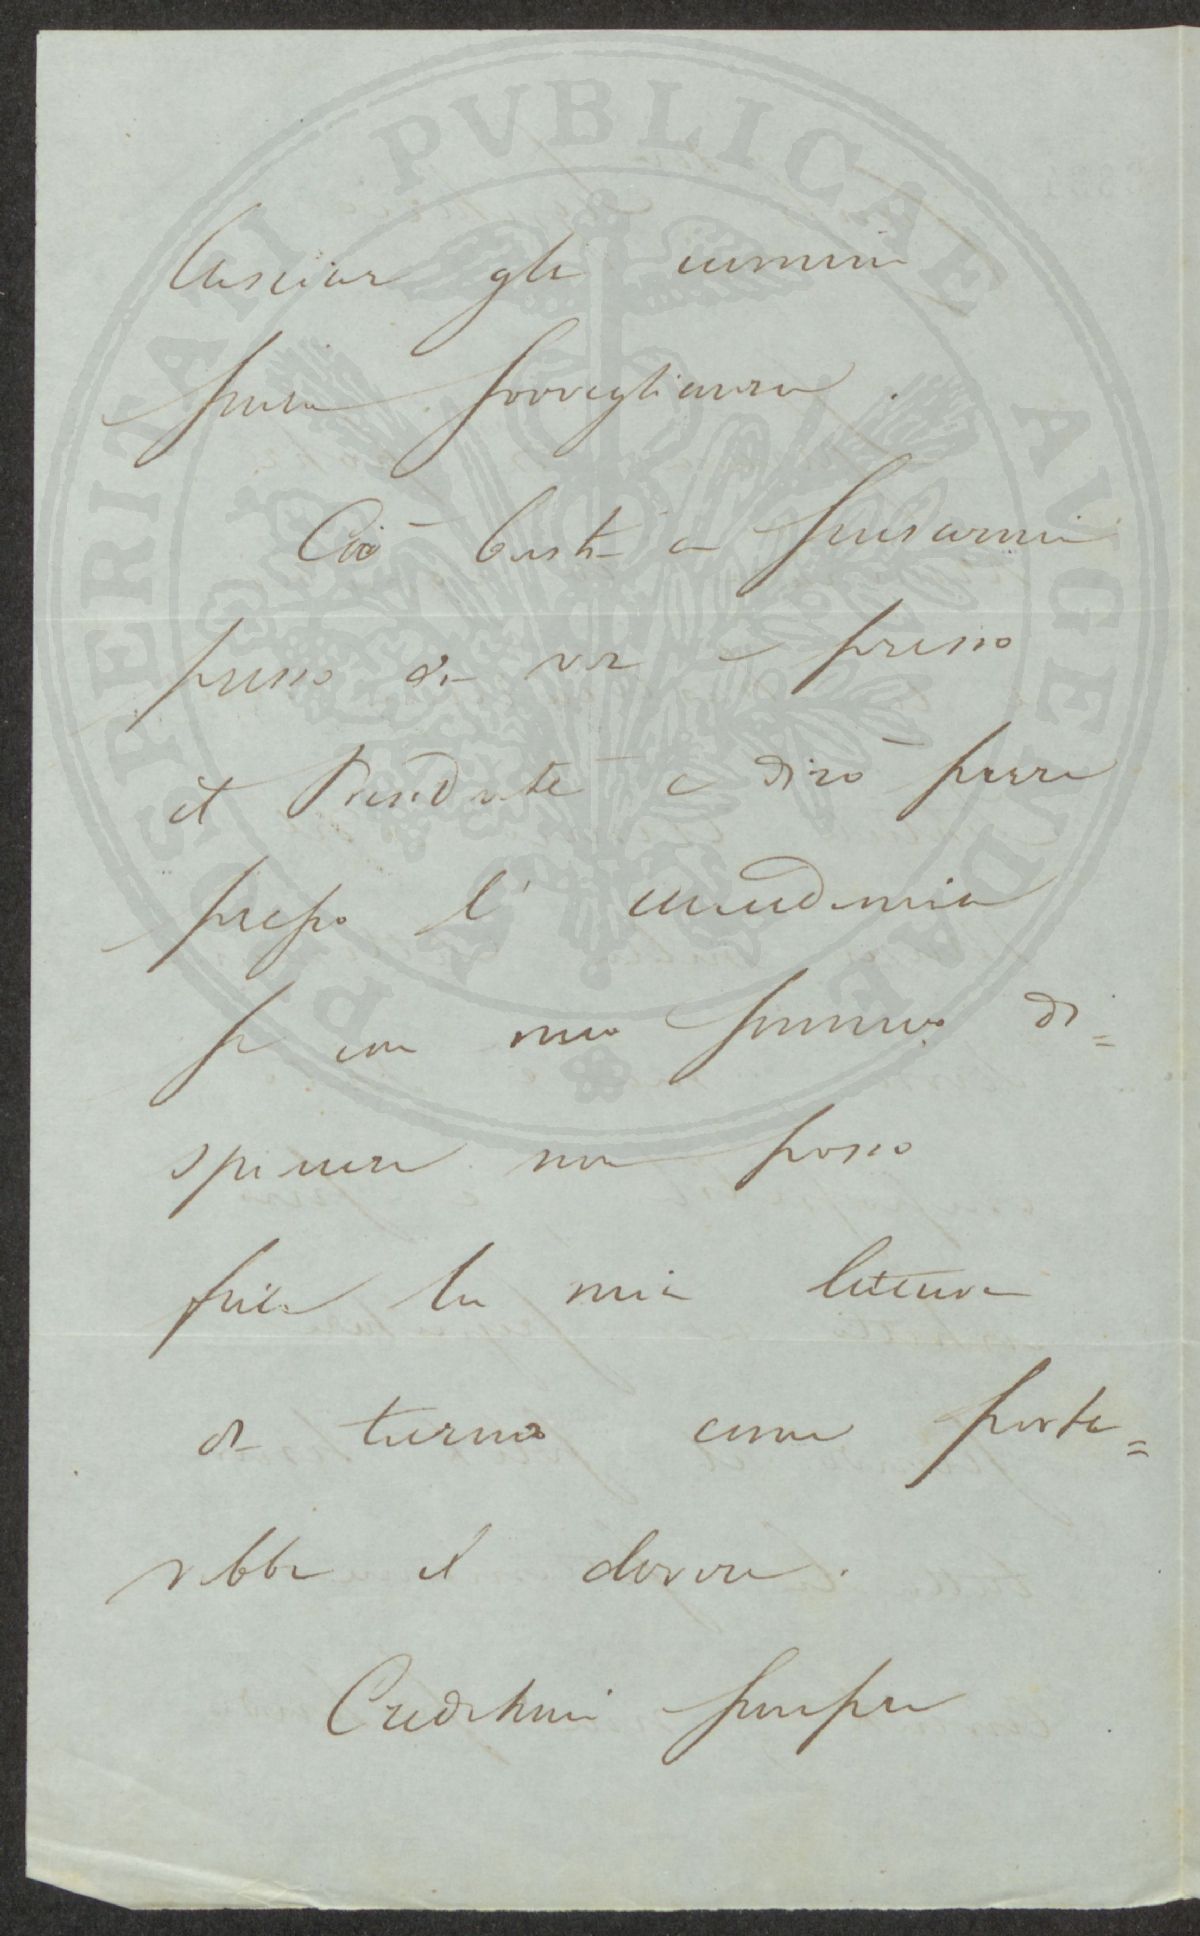 PROSPERITATI PVBLICAE AVGENDAE
lasciar gli uomini
senza sorveglianza.
Ciò basti a scusarmi
presso di voi e presso
il Presidente e dirò pure
presso l'accademia
se con mio sommo di=
spiacere non posso
fare la mia lettura
di turno come porte=
rebbe il dovere.
Credetemi sempre